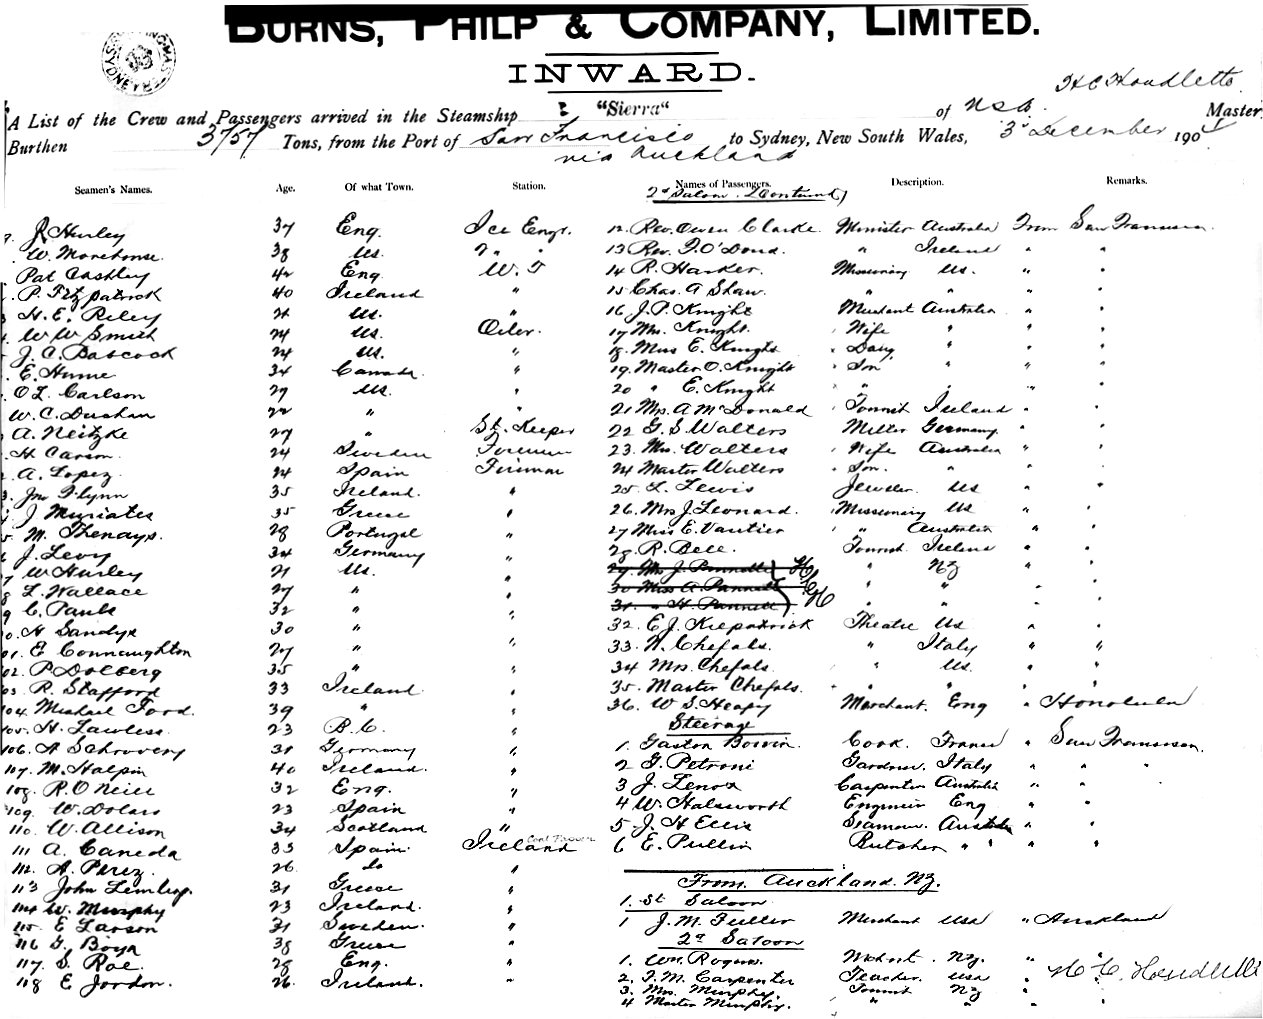 BURNS, PHILP & COMPANY, LIMITED.
INWARD.
H C Houdlette
A List of the Crew and Passengers arrived in the Steamship "Sierra" of USA Master
Burthen 3757 Tons, from the Port of San Francisco to Sydney, New South Wales, 3rd December 190
via Auckland
Seamen's Names. Age. Of what Town. Station. Names of Passengers. Description. Remarks.
2nd Saloon Continued
J Hurley 37 Eng. Ice Engr. 12. Rev. Owen Clarke. Minister Australia From San Francisco
W. Morehouse 38 US. " " 13 Rev. O'Dond. " Ireland " "
Pat Cashley 42 Eng W. T 14 R. Harker. Missionary US. " "
P. Fitzpatrick 40 Ireland " 15 Chas. A Shaw. " " " "
H. E. Riley US. " 16 J. P. Knight Merchant Australia " "
W W Smith 24 US. Oiler. 17 Mrs. Knight. Wife " " "
J. C. Bascock 24 US. " 18. Miss E. Knight " " "
E. Hume 34 Canada. " 19. Master O. Knight Son " " "
O L. Carlson 27 US. " 20 " E. Knight " " " "
W. C. Durham 22 " " 21 Mrs. A McDonald Tourist Ireland " "
A. Neitzke 27 " St. Keeper 22 G. S Walters Miller Germany " "
H Carson 24 Sweden Foreman 23. Mrs. Walters Wife Australia " "
A. Lopez 24 Spain Fireman 24 Master Walters Son. " " "
Jno Flynn 35 Ireland. " 25 L. Lewis Jeweler US " "
J Muriates 35 Greece " 26. Mrs J. Leonard. Missionary US "
M. Thenays. 28 Portugal " 27 Miss E. Vautier " Australia " "
J. Levy 34 Germany " 28. R. Bell. Tourist Ireland " "
W Hurley 21 US. " 29. J. Pannell " NZ " "
L. Wallace 27 " " 30 Miss A. Pannell " " " "
C. Pauls 32 " " 31 " H. Pannell " " " "
H Sandys 30 " " 32. E J. Kilpatrick Theatre US " "
101. E Connaughton 27 " " 33. N. Chefalo. " Italy " "
102. P. Dolberg 35 " " 34 Mrs. Chefalo " US. " "
103. R. Stafford 33 Ireland " 35. Master Chefalo. " " " "
104. Michael Ford. 39 " " 36. W S. Heapy Merchant. Eng " Honolulu
105. H. Lawless. 23 B. C. " Steerage
106. A Schrovery 31 Germany " 1. Gaston Boivin. Cook. France " San Francisco.
107. M. Halpin 40 Ireland. " 2 G. Petroni Gardner. Italy " "
108. R. O Neill 32 Eng. " 3 J. Lenox Carpenter Australia " "
109. W. Dolars 23 Spain " 4 W. Halsworth Engineer Eng " "
110. W. Allison 34 Scotland " 5 J. H Ellis Seaman. Australia " "
111 A. Caneda 33 Spain. Ireland Coal Passer 6 E. Pullin Butcher " " " "
112. A. Perez. 26 do "
113 John 31 Greece " From Auckland. NZ.
114 W. Murphy 23 Ireland. " 1. St Saloon
115. E Larson 21 Sweden. " 1 J. M. Fuller Merchant USA " Auckland
116 G. Boya 38 Greece " 2d Saloon
117. S. Rae. 28 Eng. " 1. Wm. Rogers. NZ. "
118 E Jordon. 26. Ireland. " 2. F. M. Carpenter Teacher. USA " "
3. Mrs. Murphy. Tourist NZ "
4 Master Murphy. " " "
H. C. Houdlette